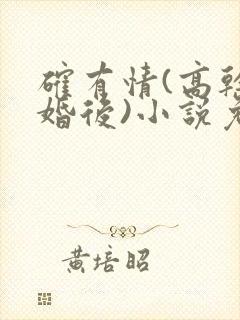 確有情(高幹
婚後)小說
黃培昭